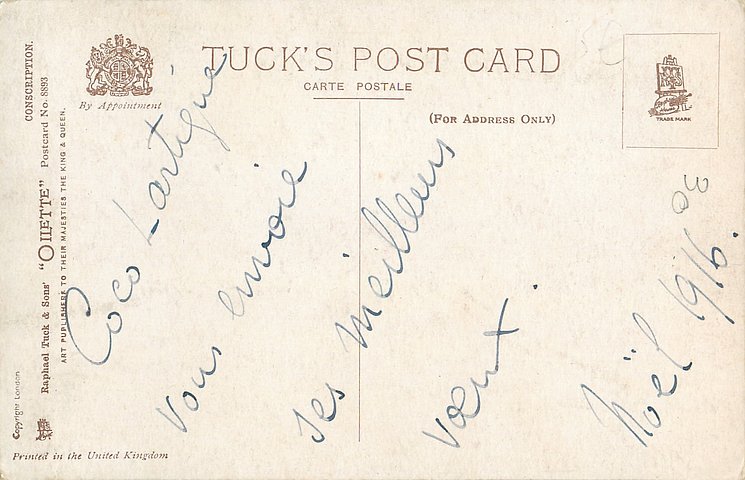 TUCK'S POST CARD
CARTE POSTALE
(FOR ADDRESS ONLY)
By Appointment
TRADE MARK
CONSCRIPTION.
Raphael Tuck & Sons' "OILETTE" Postcard No. 8893
ART PUBLISHERS TO THEIR MAJESTIES THE KING & QUEEN.
Copyright London
Printed in the United Kingdom
Coco Lartigue
vous envoie
ses meilleurs
vœux.
Noël 1916.